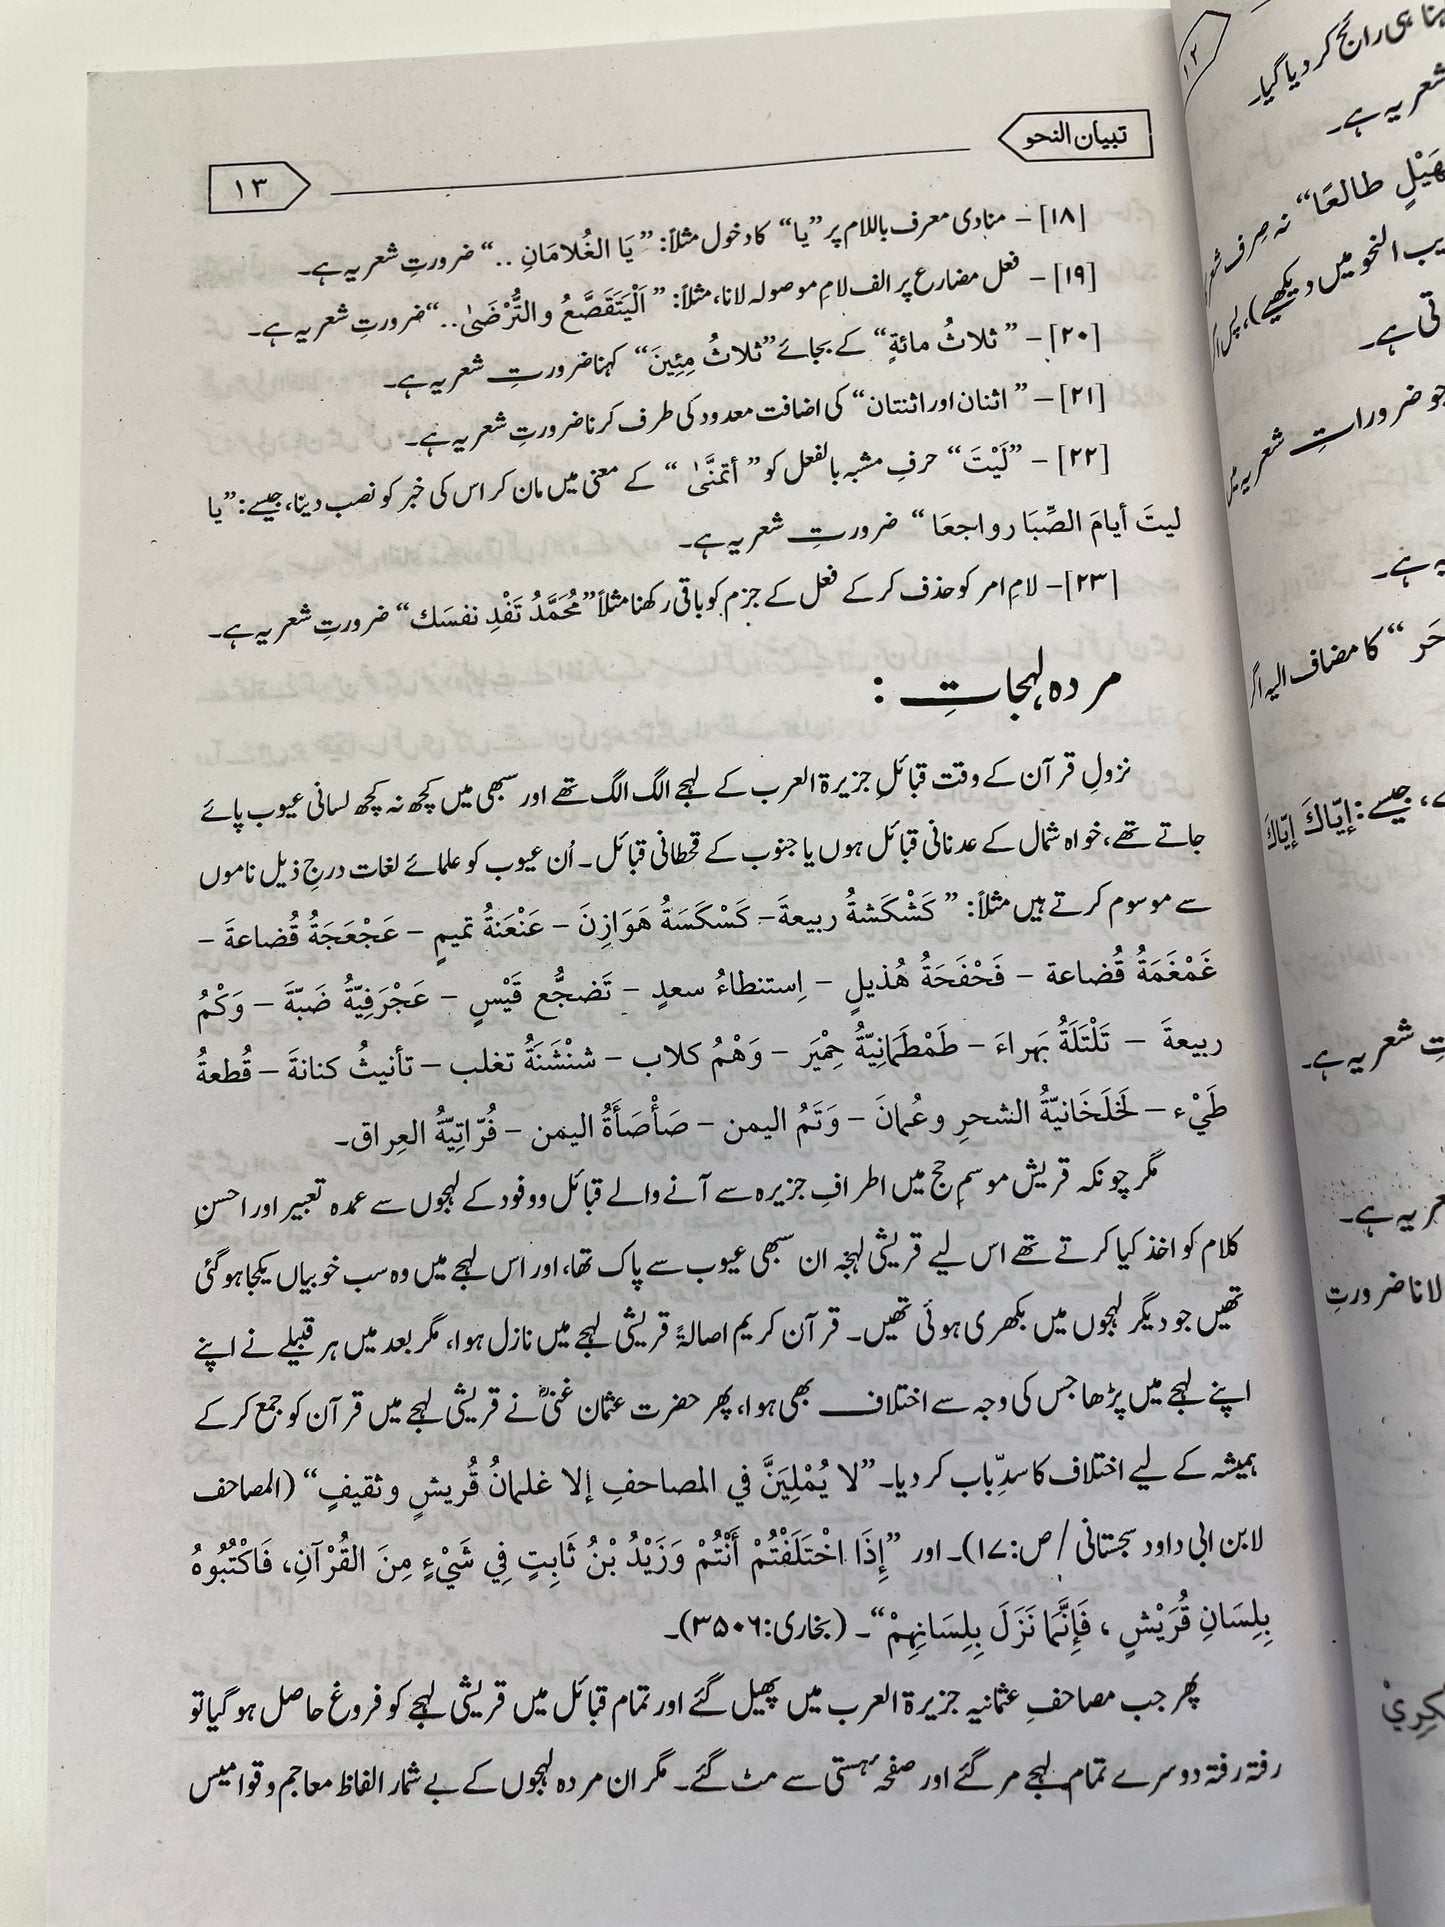 تبیان النحو
۱۳
[۱۸] – منادی معرف باللام پر ”یا“ کا دخول مثلاً: ”یَا الغُلامَانِ ..“ ضرورتِ شعریہ ہے۔
[۱۹] – فعل مضارع پر الف لامِ موصولہ لانا، مثلاً: ”اَلْیَتَقَصَّعُ والتُّرْضَیٰ..“ ضرورتِ شعریہ ہے۔
[۲۰] – ”ثلاثُ مائةٍ“ کے بجائے ”ثلاثُ مِئِینَ“ کہنا ضرورتِ شعریہ ہے۔
[۲۱] – ”اثنان اور اثنتان“ کی اضافت معدود کی طرف کرنا ضرورتِ شعریہ ہے۔
[۲۲] – ”لَیْتَ“ حرفِ مشبہ بالفعل کو ”أتمنَّیٰ“ کے معنی میں مان کر اس کی خبر کو نصب دینا، جیسے: ”یا
لیتَ أیامَ الصِّبَا رواجعَا“ ضرورتِ شعریہ ہے۔
[۲۳] – لامِ امر کو حذف کر کے فعل کے جزم کو باقی رکھنا مثلاً ”مُحَمَّدُ تَفْدِ نفسَك“ ضرورتِ شعریہ ہے۔
مردہ لہجات :
نزولِ قرآن کے وقت قبائلِ جزیرة العرب کے لہجے الگ الگ تھے اور سبھی میں کچھ نہ کچھ لسانی عیوب پائے
جاتے تھے، خواہ شمال کے عدنانی قبائل ہوں یا جنوب کے قحطانی قبائل۔ اُن عیوب کو علمائے لغات درجِ ذیل ناموں
سے موسوم کرتے ہیں مثلاً: ”کَشْکَشةُ ربیعةَ – کَسْکَسَةُ هَوَازِنَ – عَنْعَنَةُ تمیمٍ – عَجْعَجَةُ قُضاعةَ –
غَمْغَمَةُ قُضاعة – فَحْفَحَةُ هُذیلٍ – اِستنطاءُ سعدٍ – تَضجُّع قَیْسٍ – عَجْرَفِیَّةُ ضَبّةَ – وَکْمُ
ربیعةَ – تَلْتَلَةُ بَهراءَ – طَمْطَمَانِیّةُ حِمْیَر – وَهْمُ کلاب – شنْشَنَةُ تغلب – تأنیثُ کنانةَ – قُطعةُ
طَيْء – لَخلَخَانیّةُ الشحرِ وعُمانَ – وَتَمُ الیمن – صَأْصَأَةُ الیمن – فُرّاتِیَّةُ العِراق۔
مگر چونکہ قریش موسمِ حج میں اطرافِ جزیرہ سے آنے والے قبائل و وفود کے لہجوں سے عمدہ تعبیر اور احسنِ
کلام کو اخذ کیا کرتے تھے اس لیے قریشی لہجہ ان سبھی عیوب سے پاک تھا، اور اس لہجے میں وہ سب خوبیاں یکجا ہو گئی
تھیں جو دیگر لہجوں میں بکھری ہوئی تھیں۔ قرآن کریم اصالةً قریشی لہجے میں نازل ہوا، مگر بعد میں ہر قبیلے نے اپنے
اپنے لہجے میں پڑھا جس کی وجہ سے اختلاف بھی ہوا، پھر حضرت عثمان غنیؓ نے قریشی لہجے میں قرآن کو جمع کر کے
ہمیشہ کے لیے اختلاف کا سدِّ باب کر دیا۔ ”لا یُمْلِیَنَّ في المصاحفِ إلا غلمانُ قُریشٍ وثقیفٍ“ (المصاحف
لابن ابی داود سجستانی / ص:۱۷)۔ اور ”إِذَا اخْتَلَفْتُمْ أَنْتُمْ وَزَیْدُ بْنُ ثَابِتٍ فِي شَيْءٍ مِنَ القُرْآنِ، فَاکْتُبُوهُ
بِلِسَانِ قُرَیْشٍ ، فَإِنَّمَا نَزَلَ بِلِسَانِهِمْ“۔ (بخاری:۳۵۰۶)۔
پھر جب مصاحفِ عثمانیہ جزیرة العرب میں پھیل گئے اور تمام قبائل میں قریشی لہجے کو فروغ حاصل ہو گیا تو
رفتہ رفتہ دوسرے تمام لہجے مر گئے اور صفحۂ ہستی سے مٹ گئے۔ مگر ان مردہ لہجوں کے بے شمار الفاظ معاجم و قوامیس
۱۲
ہی رائج کر دیا گیا۔
شعریہ ہے۔
طالعًا“ نہ صِرف
النحو میں دیکھیے)، پس
ہے۔
جو ضروراتِ شعریہ
ہے۔
“ کا مضاف الیہ اگر
، جیسے: إیّاكَ إیّاكَ
شعریہ ہے۔
ہے۔
لانا ضرورتِ